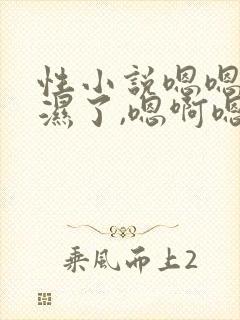 性小説嗯嗯
濕了,嗯啊嗯
乘風而上2